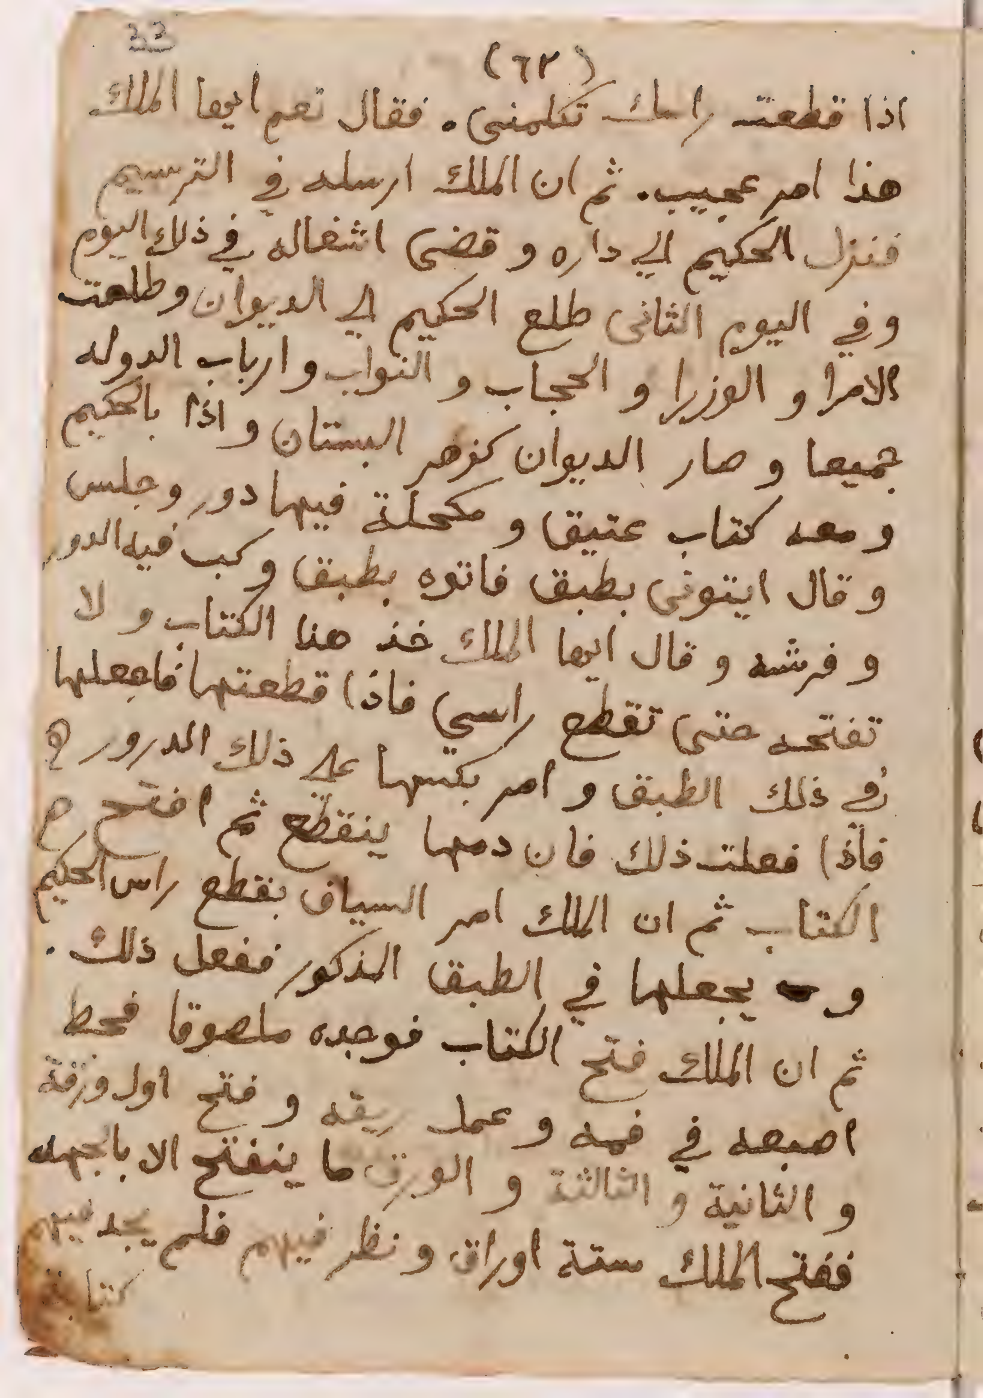 33
(٦٢)
اذا قطعت راسك تكلمنى. فقال نعم ايها الملك
هذا امر عجيب. ثم ان الملك ارسله في الترسيم
فنزل الحكيم الي داره و قضى اشغاله في ذلك اليوم
وفي اليوم الثانى طلع الحكيم الي الديوان وطلعت
الامرا و الوزرا و الحجاب و النواب و ارباب الدوله
جميعا و صار الديوان كزهر البستان و اذا بالحكيم
و معه كتاب عتيق و مكحلة فيها دور و جلس
و قال ايتونى بطبق فاتوه بطبق وكب فيه الدور
و فرشه و قال ايها الملك خذ هذا الكتاب و لا
تفتحه حتى تقطع راسي فاذا قطعتها فاجعلها
في ذلك الطبق و امر بكبسها علي ذلك الدرور
فاذا فعلت ذلك فان دمها ينقطع ثم افتح
الكتاب ثم ان الملك امر السياف بقطع راس الحكيم
و يجعلها في الطبق المذكور ففعل ذلك.
ثم ان الملك فتح الكتاب فوجده ملصوقا فحط
اصبعه في فمه و عمل ريقه و فتح اول ورقة
و الثانية و الثالثة و الورق ما ينفتح الا بالجهد
ففتح الملك ستة اوراق و نظر فيهم فلم يجد فيهم
كتابة